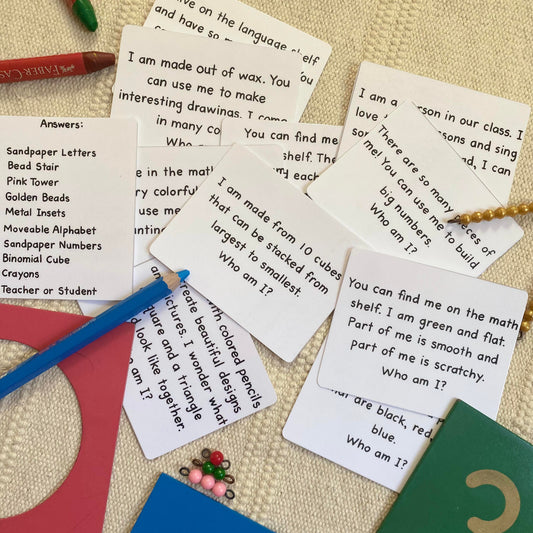 live on the language shelf
and have so m
I am made out of wax. You
can use me to make
interesting drawings. I come
in many co
Who a
FABER-CAS
Answers:
Sandpaper Letters
Bead Stair
Pink Tower
Golden Beads
Metal Insets
Moveable Alphabet
Sandpaper Numbers
Binomial Cube
Crayons
Teacher or Student
You can find me
shelf. The
d each
I am a person in our class. I
love
sons and sing
d, I can
There are so many pieces of
me! You can use me to build
big numbers.
Who am I?
e in the math
ry colorful
use me
unting
I am made from 10 cubes
that can be stacked from
largest to smallest.
Who am I?
You can find me on the math
shelf. I am green and flat.
Part of me is smooth and
part of me is scratchy.
Who am I?
with colored pencils
create beautiful designs
pictures. I wonder what
square and a triangle
d look like together.
am I?
that are black, red
blue.
Who am I?